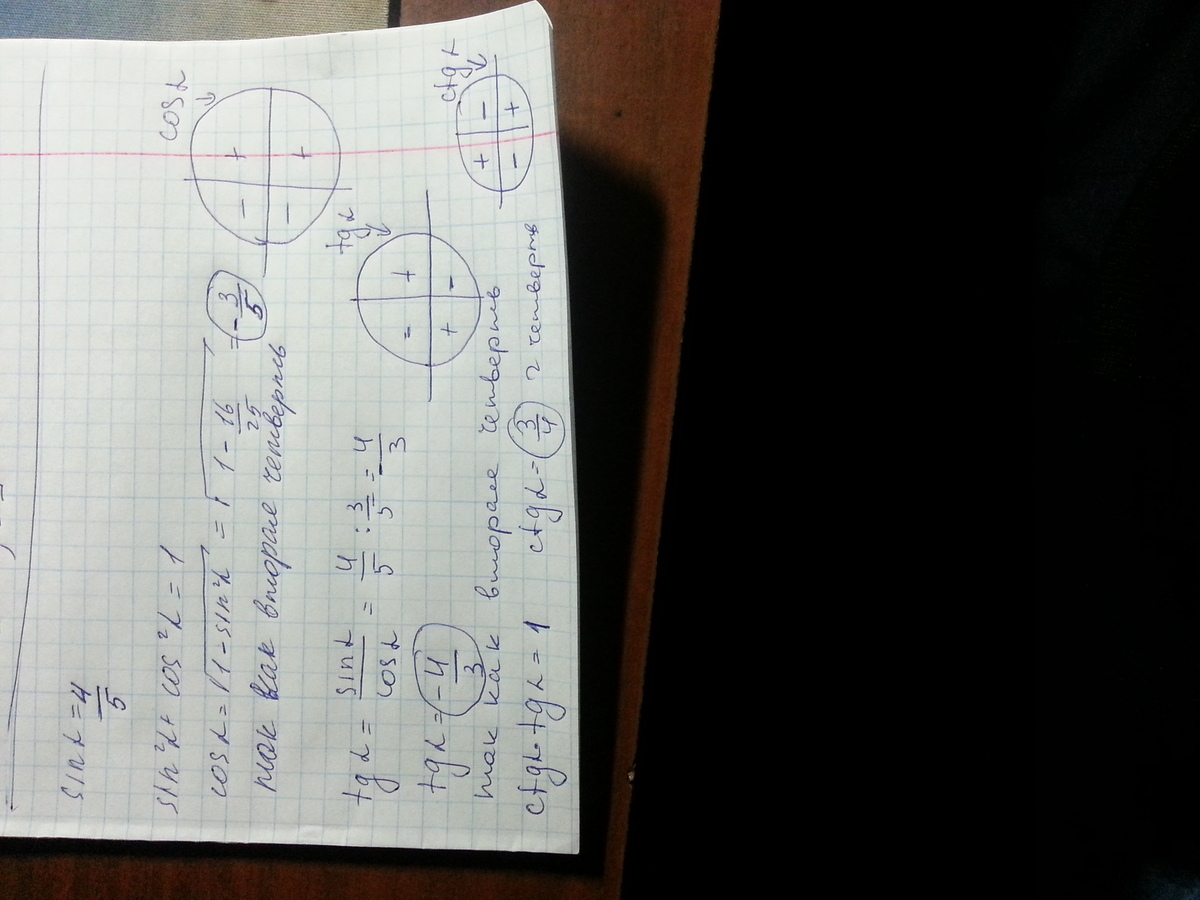 sin α = 4/5
sin²α + cos²α = 1
cos α
cos α = √(1 - sin²α) = √(1 - 16/25) = - 3/5
- +
- +
так как вторая четверть
tg α
tg α = sin α / cos α = 4/5 : 3/5 = 4/3
= +
+ -
tg α = - 4/3
так как вторая четверть
ctg α
+ -
- +
ctg α · tg α = 1 ctg α = 3/4 2 четверть